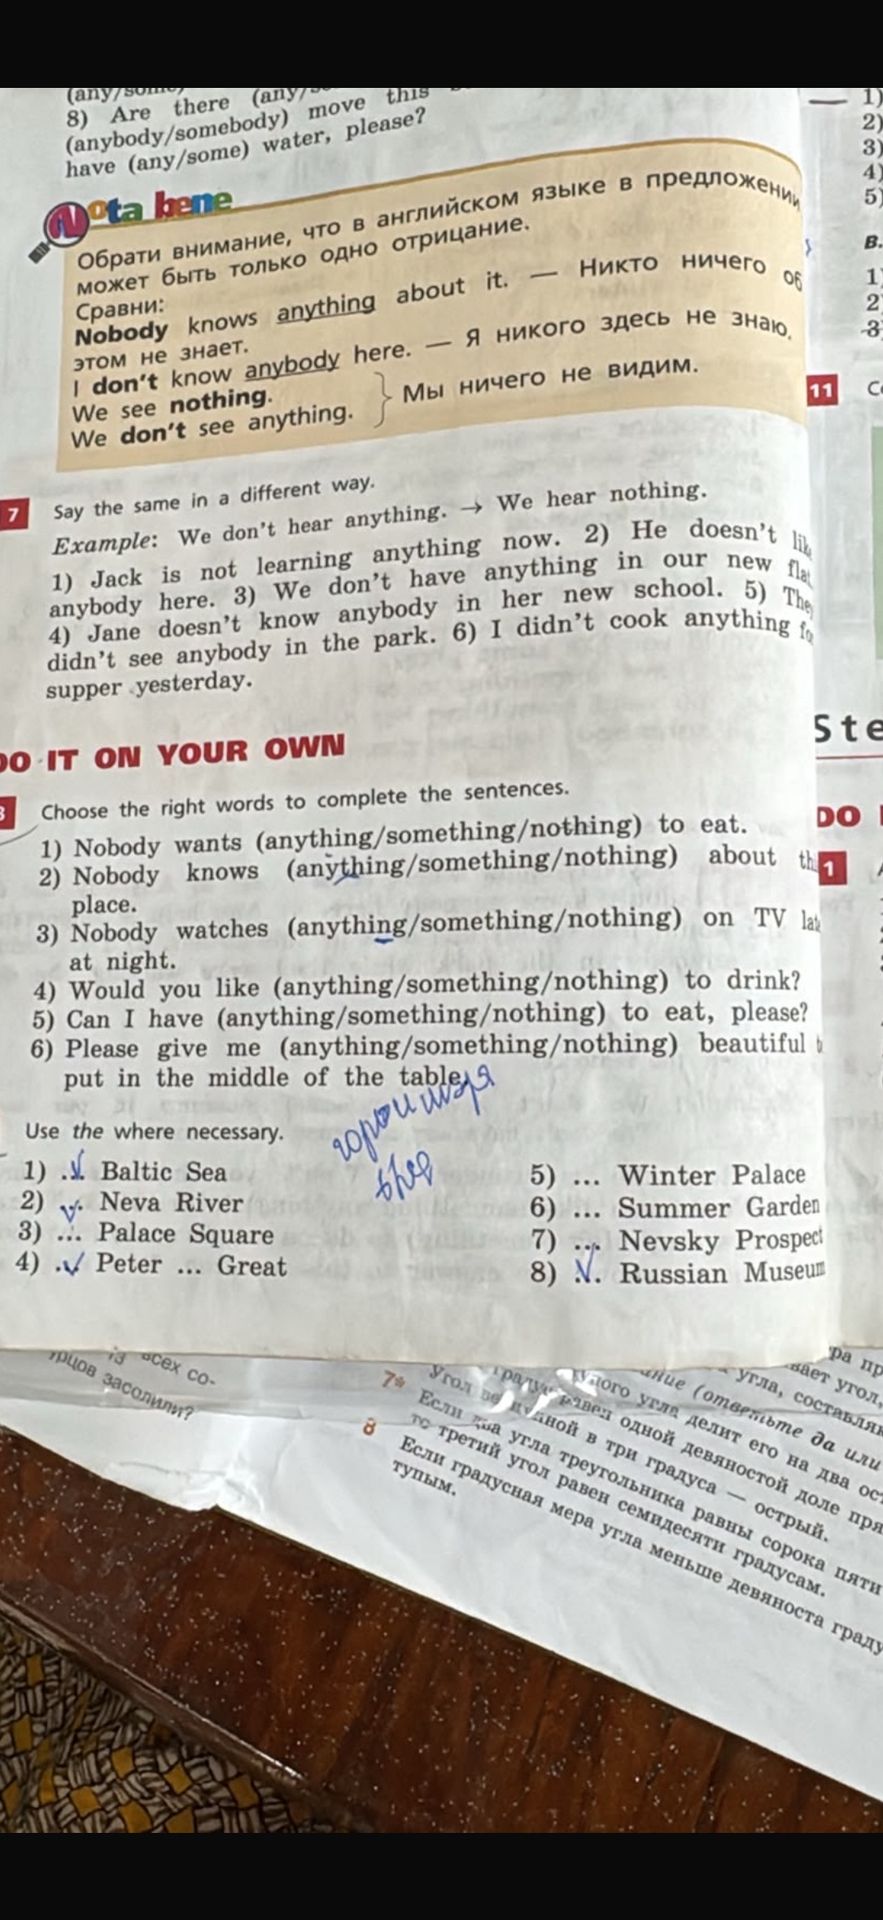 8) Are there
(anybody/somebody) move this
have (any/some) water, please?
Nota bene
Обрати внимание, что в английском языке в предложении
может быть только одно отрицание.
Сравни:
Nobody knows anything about it. — Никто ничего об
этом не знает.
I don't know anybody here. — Я никого здесь не знаю.
We see nothing.
We don't see anything.
Мы ничего не видим.
7 Say the same in a different way.
Example: We don't hear anything. → We hear nothing.
1) Jack is not learning anything now. 2) He doesn't
anybody here. 3) We don't have anything in our new
4) Jane doesn't know anybody in her new school. 5)
didn't see anybody in the park. 6) I didn't cook anything
supper yesterday.
DO IT ON YOUR OWN
Choose the right words to complete the sentences.
1) Nobody wants (anything/something/nothing) to eat.
2) Nobody knows (anything/something/nothing) about
place.
3) Nobody watches (anything/something/nothing) on TV
at night.
4) Would you like (anything/something/nothing) to drink?
5) Can I have (anything/something/nothing) to eat, please?
6) Please give me (anything/something/nothing) beautiful
put in the middle of the table.
Use the where necessary.
1) ... Baltic Sea
2) ... Neva River
3) ... Palace Square
4) ... Peter ... Great
5) ... Winter Palace
6) ... Summer Garden
7) ... Nevsky Prospect
8) ... Russian Museum
1)
2)
3)
4)
5)
B.
1)
2
3
11
Ste
DO
1
всех со-
засолили?
7*
угла, составля
угла делит его на два
одной девяностой доле
в три градуса — острый.
Если два угла треугольника равны сорока пяти
то третий угол равен семидесяти градусам.
8 Если градусная мера угла меньше девяноста
тупым.